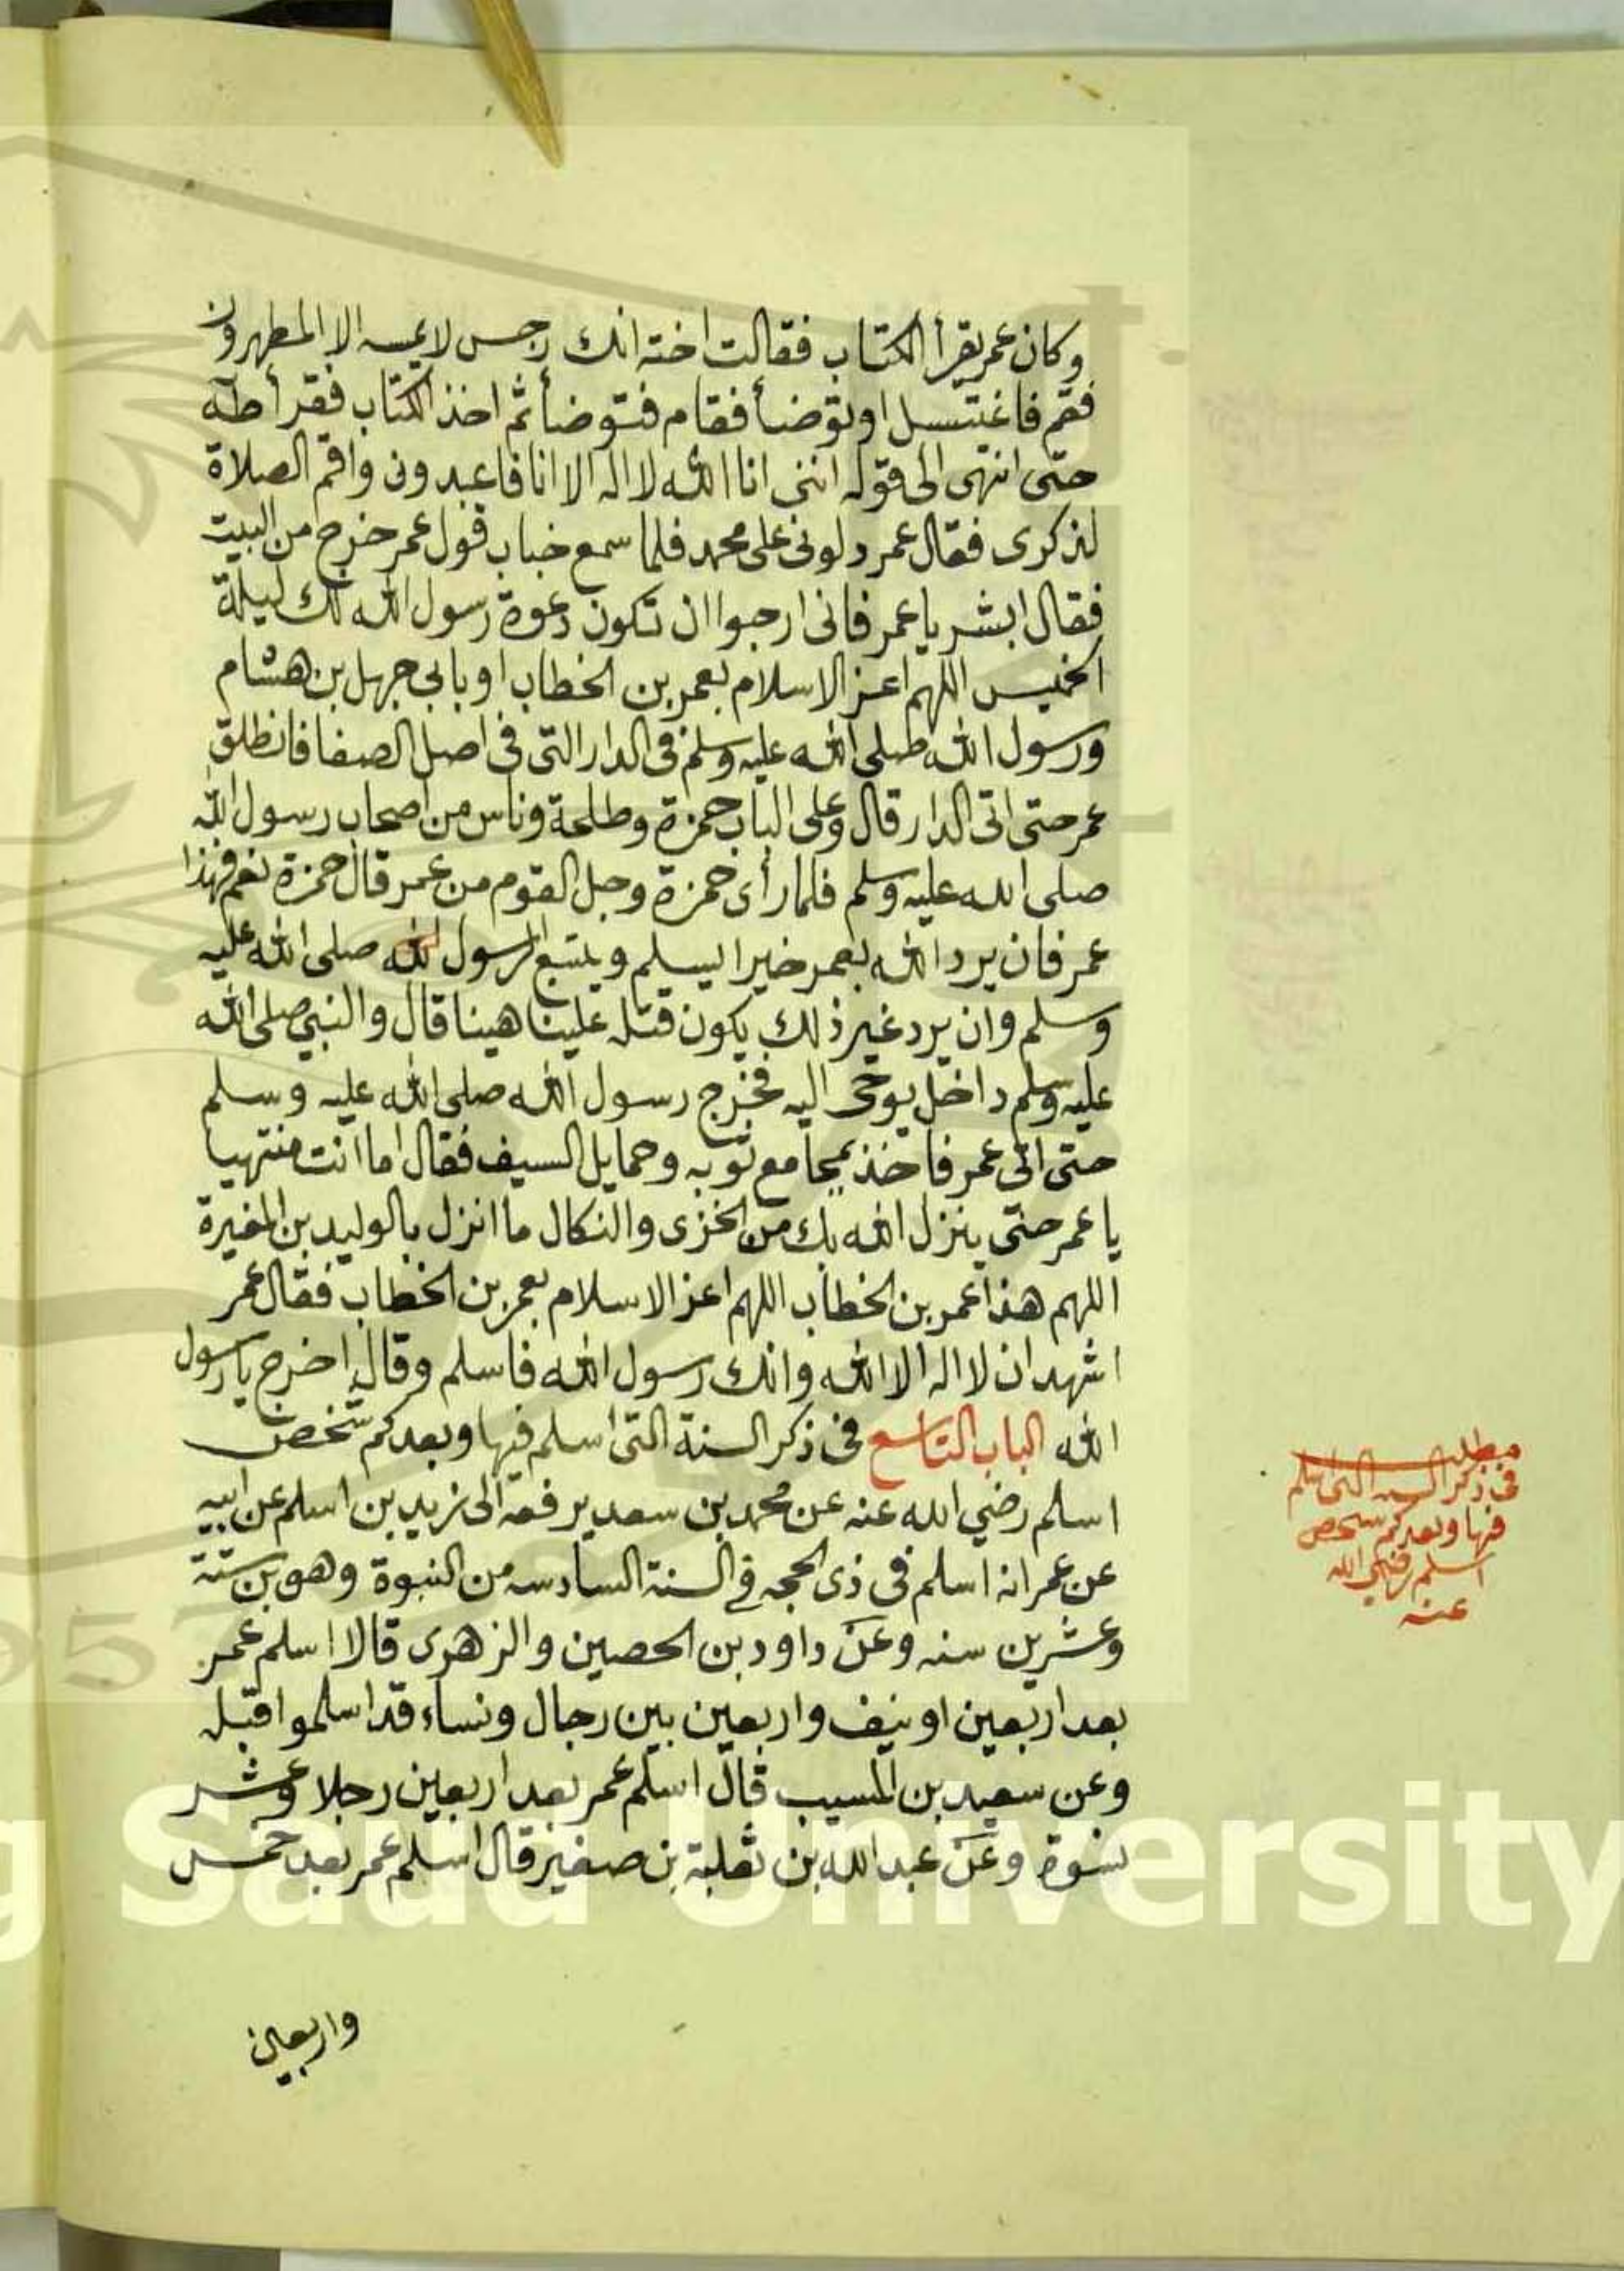 وكان عمر يقرأ الكتاب فقالت اخته انك رجس لا يمسه الا المطهرون
فقم فاغتسل او توضأ فقام فتوضأ ثم اخذ الكتاب فقرأ طه
حتى انتهى الى قوله انني انا الله لا اله الا انا فاعبدون واقم الصلاة
لذكرى فقال عمر دلونى على محمد فلما سمع خباب قول عمر خرج من البيت
فقال ابشر يا عمر فانى ارجوا ان تكون دعوة رسول الله لك ليلة
الخميس اللهم اعز الاسلام بعمر بن الخطاب او بابي جهل بن هشام
ورسول الله صلى الله عليه وسلم فى الدار التى فى اصل الصفا فانطلق
عمر حتى اتى الدار قال وعلى الباب حمزة وطلحة وناس من اصحاب رسول الله
صلى الله عليه وسلم فلما رأى حمزة وجل القوم من عمر قال حمزة نعم فهذا
عمر فان يرد الله بعمر خيرا يسلم ويتبع الرسول الله صلى الله عليه
وسلم وان يرد غير ذلك يكون قتله علينا هينا قال والنبي صلى الله
عليه وسلم داخل يوحى اليه فخرج رسول الله صلى الله عليه وسلم
حتى اتى عمر فاخذ بمجامع ثوبه وحمايل السيف فقال اما انت منتهيا
يا عمر حتى ينزل الله بك من الخزى والنكال ما انزل بالوليد بن المغيرة
اللهم هذا عمر بن الخطاب اللهم اعز الاسلام بعمر بن الخطاب فقال عمر
اشهد ان لا اله الا الله وانك رسول الله فاسلم وقال اخرج يا رسول
الله الباب التاسع فى ذكر السنة التى اسلم فيها وبعد كم شخص
اسلم رضي الله عنه عن محمد بن سعد يرفعه الى زيد بن اسلم عن ابيه
عن عمر انه اسلم فى ذى الحجه في السنة السادسه من النبوة وهو بن ستة
وعشرين سنه وعن داود بن الحصين والزهرى قالا اسلم عمر
بعد اربعين او نيف واربعين بين رجال ونساء قد اسلموا قبله
وعن سعيد بن المسيب قال اسلم عمر بعد اربعين رجلا وعشر
نسوة وعن عبد الله بن ثعلبة بن صغير قال اسلم عمر بعد خمس
واربعين
مطلب
فى ذكر السنه التى اسلم
فيها وبعد كم شخص
اسلم رضي الله
عنه
g Saud University